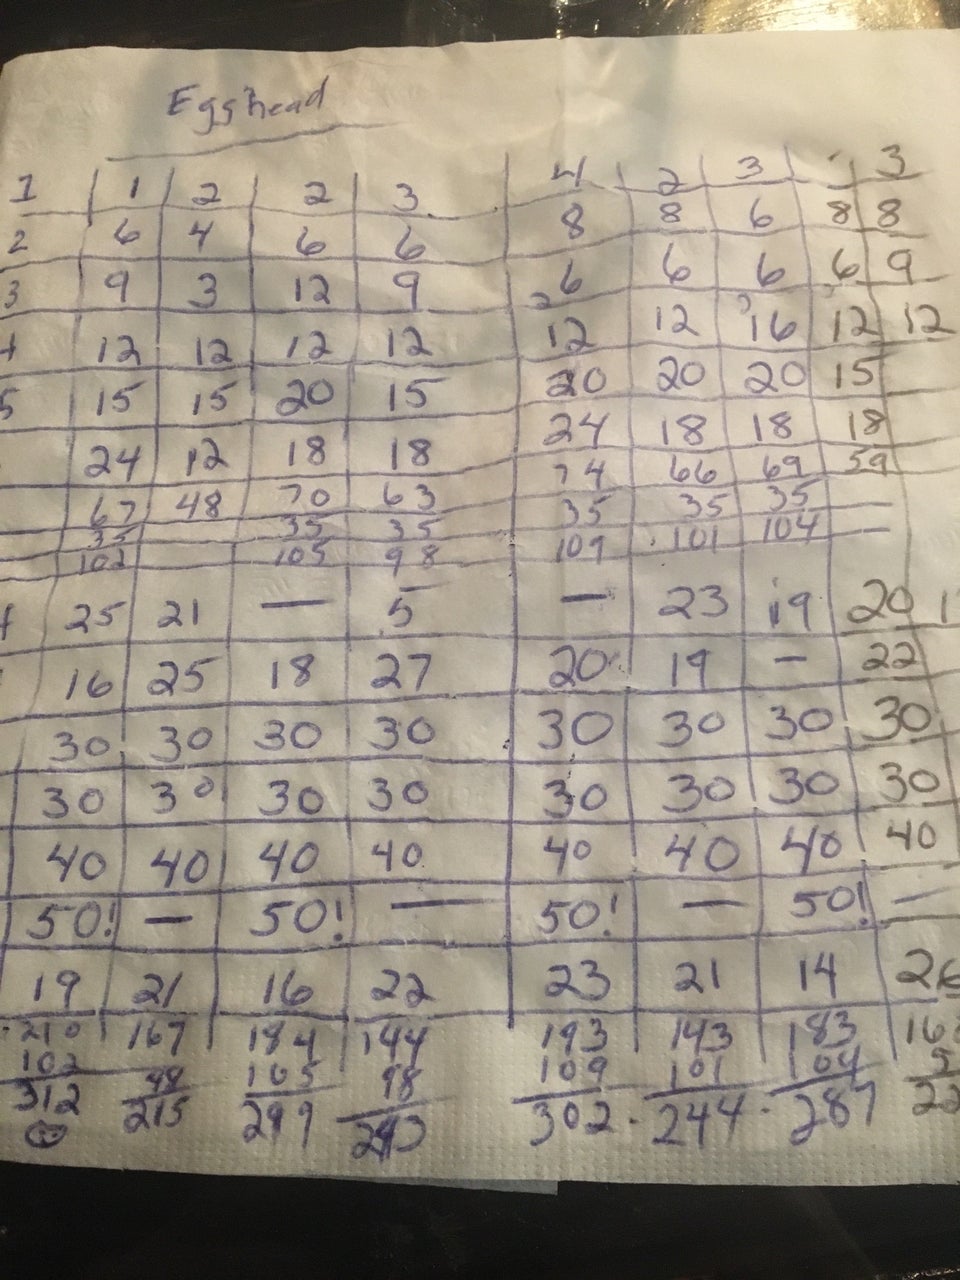 Egghead
1 1 2 2 3 4 2 3 3
2 6 4 6 6 8 8 6 8 8
3 9 3 12 9 6 6 6 6 9
12 12 12 12 12 12 16 12 12
5 15 15 20 15 20 20 20 15
24 12 18 18 24 18 18 18
67 48 70 63 74 66 69 59
35 35 35 35 35 35
102 105 98 109 101 104 —
25 21 — 5 — 23 19 20
16 25 18 27 20 19 — 22
30 30 30 30 30 30 30 30
30 30 30 30 30 30 30 30
40 40 40 40 40 40 40 40
50! — 50! — 50! — 50! —
19 21 16 22 23 21 14 26
210 167 194 144 193 143 183
102 48 105 98 109 101 104
312 215 299 302 244 287